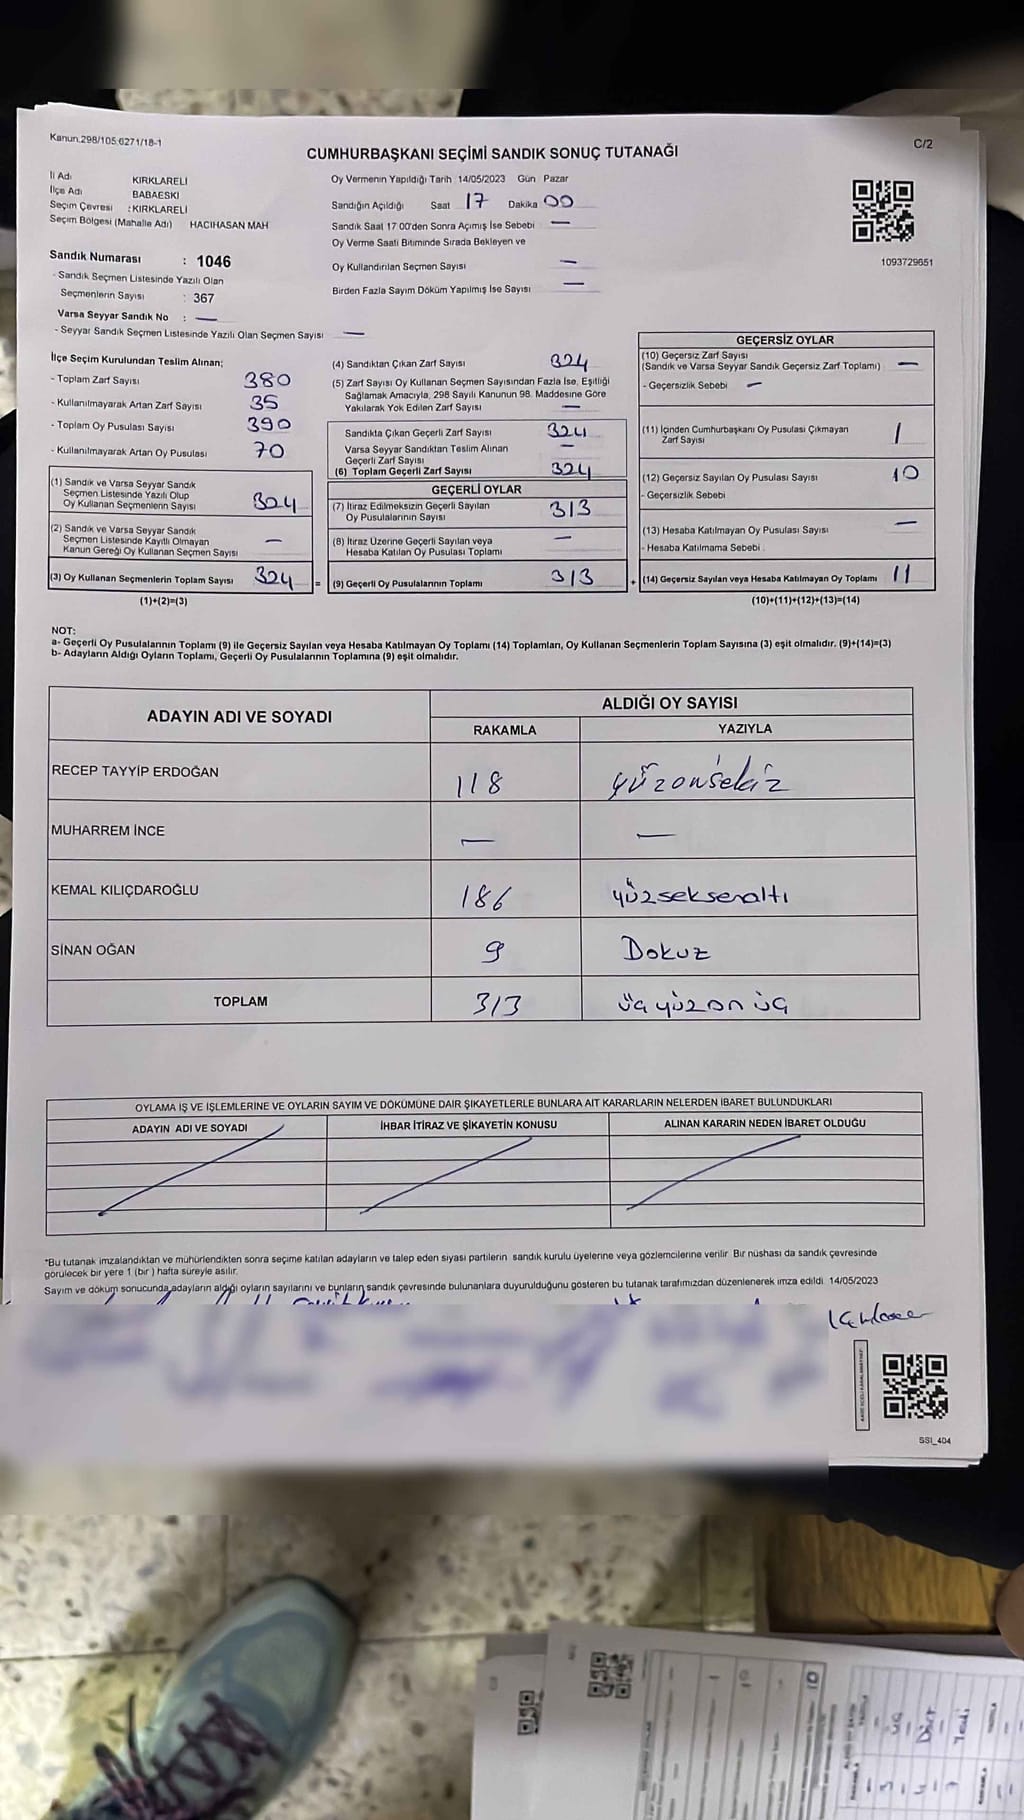 Kanun.298/105.6271/18-1
C/2
CUMHURBAŞKANI SEÇİMİ SANDIK SONUÇ TUTANAĞI
İl Adı KIRKLARELİ
İlçe Adı BABAESKI
Seçim Çevresi : KIRKLARELİ
Seçim Bölgesi (Mahalle Adı) HACIHASAN MAH
Sandık Numarası : 1046
- Sandık Seçmen Listesinde Yazılı Olan
Seçmenlerin Sayısı : 367
Varsa Seyyar Sandık No : —
- Seyyar Sandık Seçmen Listesinde Yazılı Olan Seçmen Sayısı —
Oy Vermenin Yapıldığı Tarih : 14/05/2023 Gün : Pazar
Sandığın Açıldığı Saat 17 Dakika 00
Sandık Saat 17 00'den Sonra Açımış İse Sebebi —
Oy Verme Saati Bitiminde Sırada Bekleyen ve
Oy Kullandırılan Seçmen Sayısı —
Birden Fazla Sayım Döküm Yapılmış İse Sayısı —
1093729651
İlçe Seçim Kurulundan Teslim Alınan;
- Toplam Zarf Sayısı 380
- Kullanılmayarak Artan Zarf Sayısı 35
- Toplam Oy Pusulası Sayısı 390
- Kullanılmayarak Artan Oy Pusulası 70
(1) Sandık ve Varsa Seyyar Sandık
Seçmen Listesinde Yazılı Olup
Oy Kullanan Seçmenlerin Sayısı 324
(2) Sandık ve Varsa Seyyar Sandık
Seçmen Listesinde Kayıtlı Olmayan
Kanun Gereği Oy Kullanan Seçmen Sayısı —
(3) Oy Kullanan Seçmenlerin Toplam Sayısı 324 =
(1)+(2)=(3)
(4) Sandıktan Çıkan Zarf Sayısı 324
(5) Zarf Sayısı Oy Kullanan Seçmen Sayısından Fazla İse, Eşitliği
Sağlamak Amacıyla, 298 Sayılı Kanunun 98. Maddesine Göre
Yakılarak Yok Edilen Zarf Sayısı —
Sandıkta Çıkan Geçerli Zarf Sayısı 324
Varsa Seyyar Sandıktan Teslim Alınan
Geçerli Zarf Sayısı —
(6) Toplam Geçerli Zarf Sayısı 324
GEÇERLİ OYLAR
(7) İtiraz Edilmeksizin Geçerli Sayılan
Oy Pusulalarının Sayısı 313
(8) İtiraz Üzerine Geçerli Sayılan veya
Hesaba Katılan Oy Pusulası Toplamı —
(9) Geçerli Oy Pusulalarının Toplamı 313 +
GEÇERSİZ OYLAR
(10) Geçersiz Zarf Sayısı
(Sandık ve Varsa Seyyar Sandık Geçersiz Zarf Toplamı) —
- Geçersizlik Sebebi —
(11) İçinden Cumhurbaşkanı Oy Pusulası Çıkmayan
Zarf Sayısı 1
(12) Geçersiz Sayılan Oy Pusulası Sayısı 10
- Geçersizlik Sebebi
(13) Hesaba Katılmayan Oy Pusulası Sayısı —
- Hesaba Katılmama Sebebi .
(14) Geçersiz Sayılan veya Hesaba Katılmayan Oy Toplamı 11
(10)+(11)+(12)+(13)=(14)
NOT:
a- Geçerli Oy Pusulalarının Toplamı (9) ile Geçersiz Sayılan veya Hesaba Katılmayan Oy Toplamı (14) Toplamları, Oy Kullanan Seçmenlerin Toplam Sayısına (3) eşit olmalıdır. (9)+(14)=(3)
b- Adayların Aldığı Oyların Toplamı, Geçerli Oy Pusulalarının Toplamına (9) eşit olmalıdır.
ADAYIN ADI VE SOYADI
ALDIĞI OY SAYISI
RAKAMLA YAZIYLA
RECEP TAYYİP ERDOĞAN 118 yüzonsekiz
MUHARREM İNCE — —
KEMAL KILIÇDAROĞLU 186 yüzseksenaltı
SİNAN OĞAN 9 Dokuz
TOPLAM 313 üçyüzonüç
OYLAMA İŞ VE İŞLEMLERİNE VE OYLARIN SAYIM VE DÖKÜMÜNE DAİR ŞİKAYETLERLE BUNLARA AİT KARARLARIN NELERDEN İBARET BULUNDUKLARI
ADAYIN ADI VE SOYADI İHBAR İTİRAZ VE ŞİKAYETİN KONUSU ALINAN KARARIN NEDEN İBARET OLDUĞU
*Bu tutanak imzalandıktan ve mühürlendikten sonra seçime katılan adayların ve talep eden siyasi partilerin sandık kurulu üyelerine veya gözlemcilerine verilir Bir nüshası da sandık çevresinde
görülecek bir yere 1 (bir ) hafta süreyle asılır.
Sayım ve döküm sonucunda adayların aldığı oyların sayılarını ve bunların sandık çevresinde bulunanlara duyurulduğunu gösteren bu tutanak tarafımızdan düzenlenerek imza edildi 14/05/2023
SSI_404